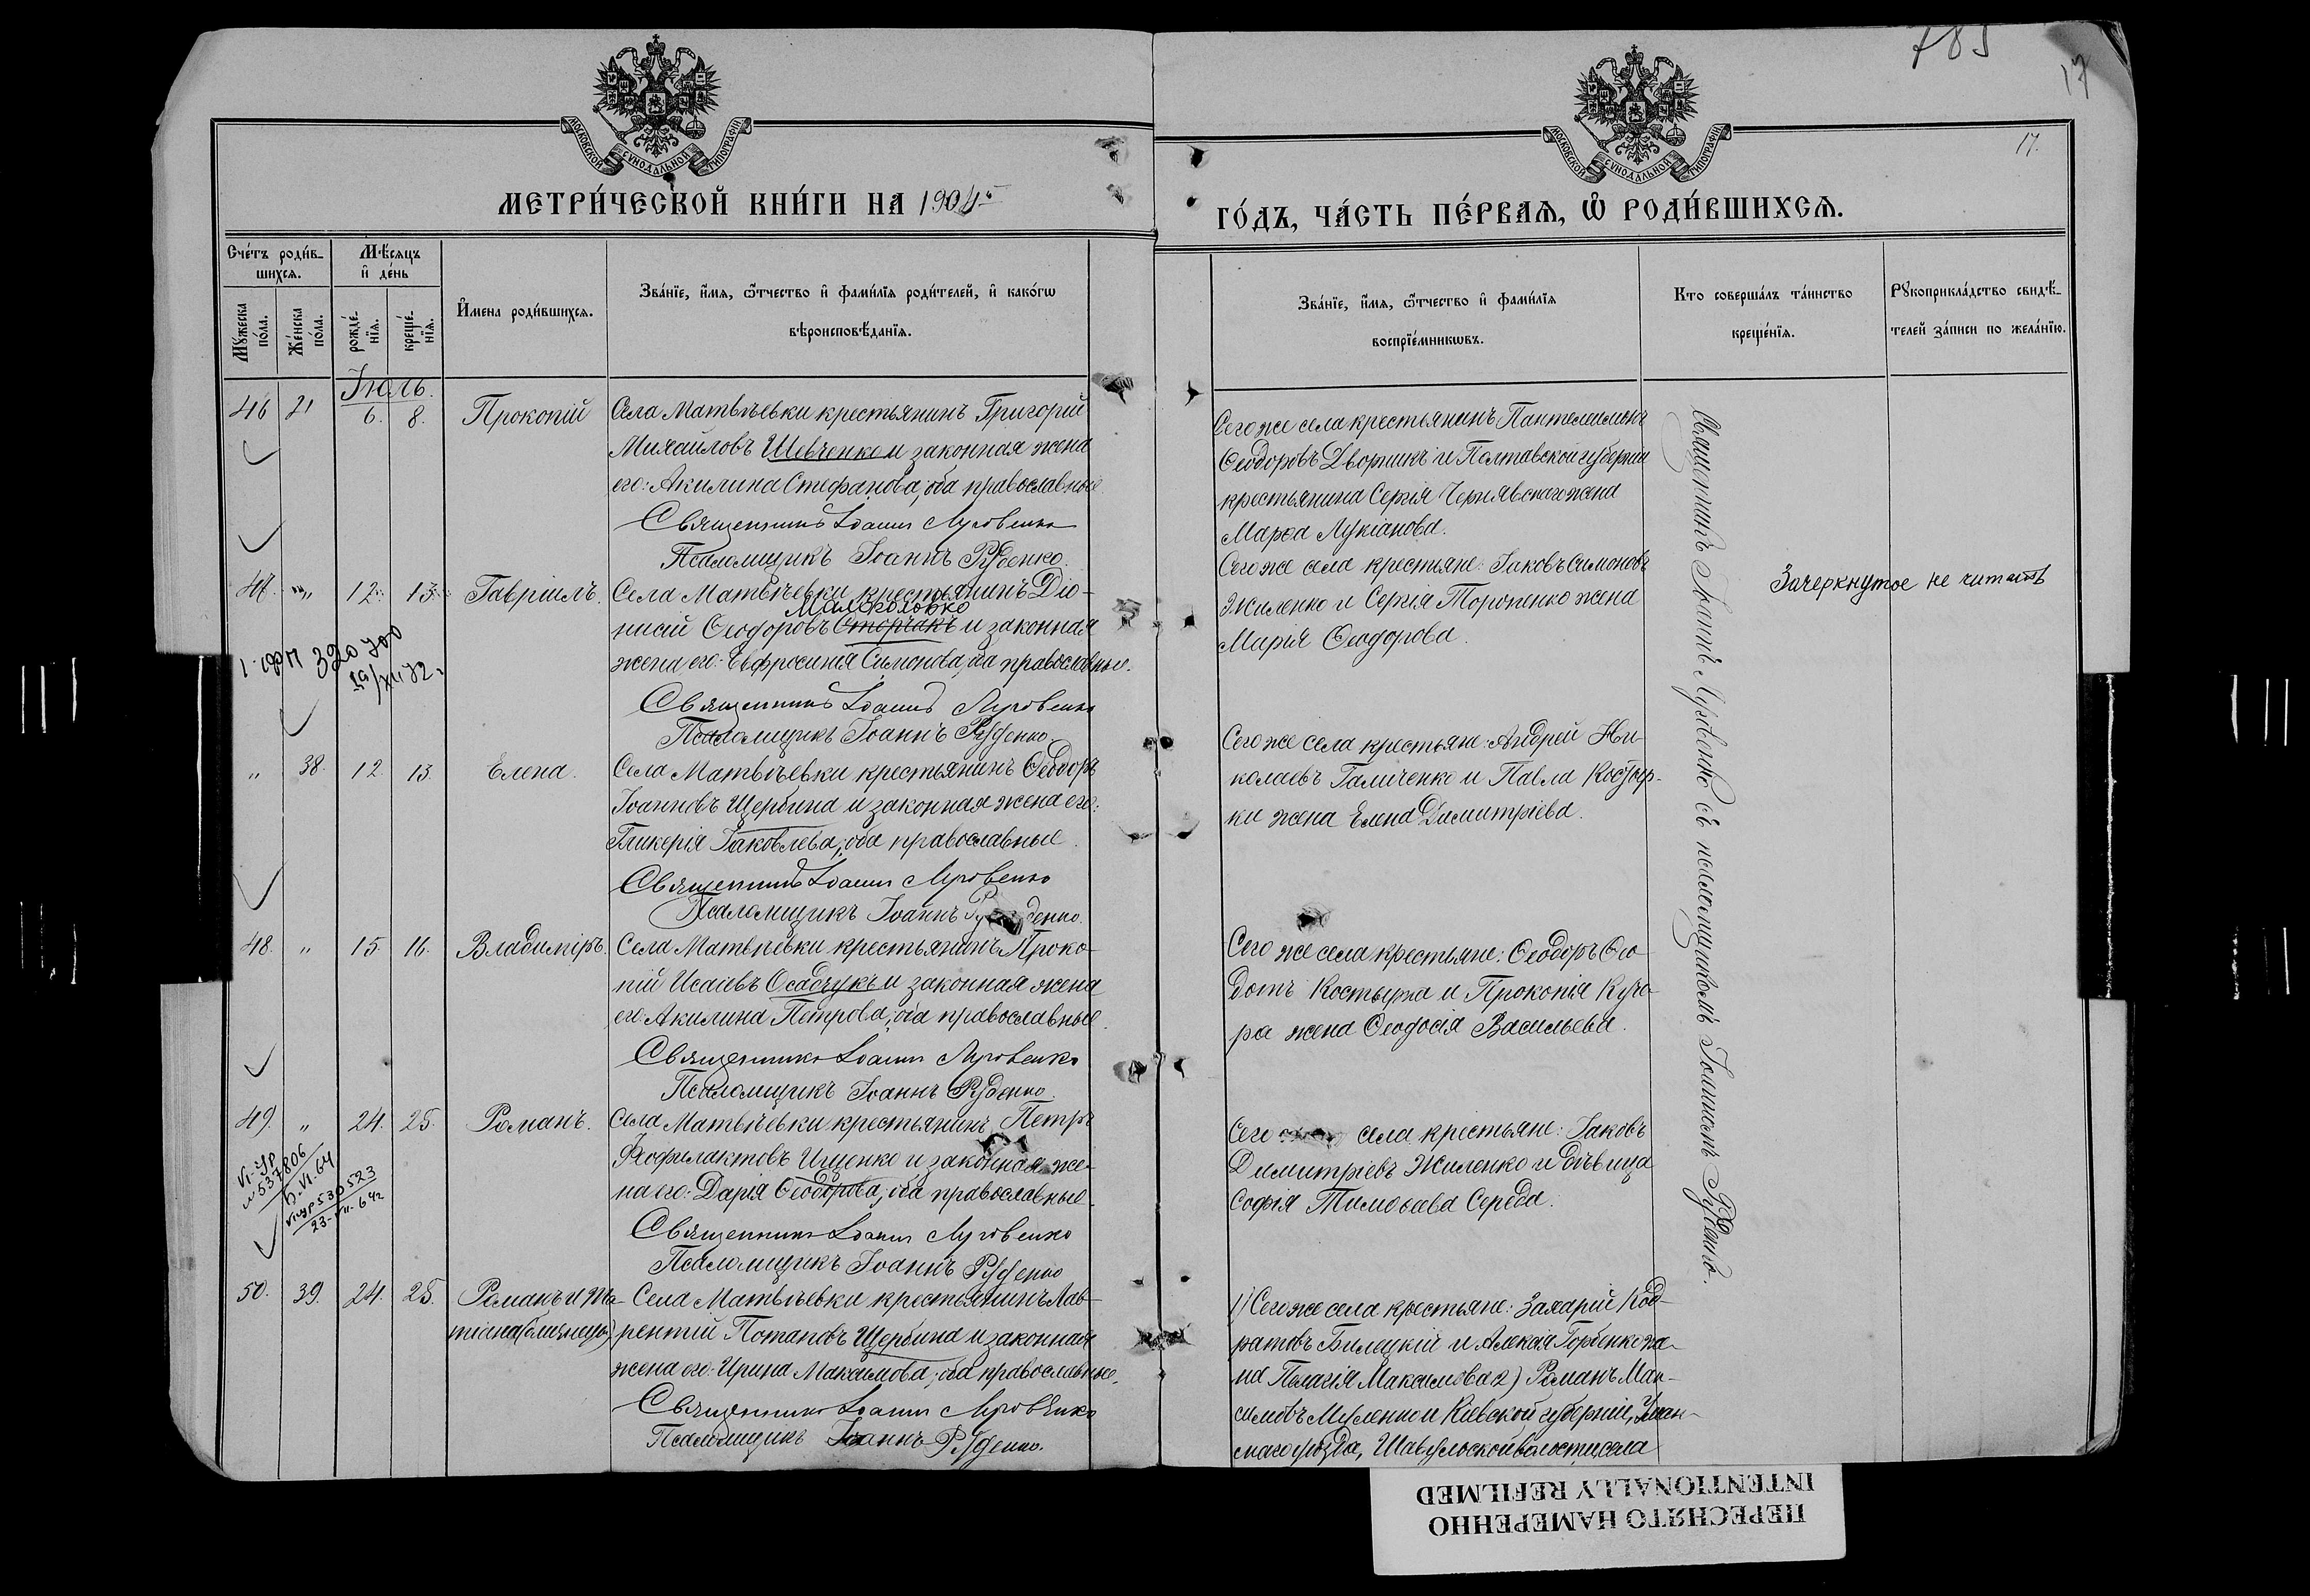 785
17
17.
МОСКОВСКОЙ СУНОДАЛЬНОЙ ТИПОГРАФІИ
МОСКОВСКОЙ СУНОДАЛЬНОЙ ТИПОГРАФІИ
МЕТРИ́ЧЕСКОЙ КНИ́ГИ НА 1904
ГО́ДЪ, ЧА́СТЬ ПЕ́РВАѦ, Ѽ РОДИ́ВШИХСѦ.
Сче́тъ роди́в-
шихсѧ.
Мꙋжеска по́ла.
Же́нска по́ла.
Мѣ́сяцъ
и҆ де́нь
рожде́-
нїѧ.
креще́-
нїѧ.
И҆мена роди́вшихсѧ.
Зва́нїе, и҆́мѧ, ѻ҆́тчество и҆ фами́лїѧ роди́телей, и҆ како́гѡ
вѣроисповѣ́данїѧ.
Зва́нїе, и҆́мѧ, ѻ҆́тчество и҆ фами́лїѧ
воспрїе́мникѡвъ.
Кто соверша́лъ та́инство
креще́нїѧ.
Рꙋкоприкла́дство свидѣ́-
телей за́писи по жела́нїю.
Іюль.
46 21 6. 8. Прокопій
Села Матвѣевки крестьянинъ Григорій
Михайловъ Шевченко и законная жена
его: Акилина Стефанова, оба православные
Священникъ Іоаннъ Луговенко
Псаломщикъ Іоаннъ Руденко.
Сего же села крестьянинъ Пантелеимонъ
Ѳеодоровъ Дворникъ и Полтавской губерніи
крестьянина Сергія Чернявскаго жена
Марѳа Лукіанова.
47. " 12. 13. Гавріилъ.
Села Матвѣевки крестьянинъ Діо-
Малоголовко
нисій Ѳеодоровъ Сторчакъ и законная
жена его: Евфросинія Симонова, оба православные.
Священникъ Іоаннъ Луговенко
Псаломщикъ Іоаннъ Руденко
Сего же села крестьяне: Іаковъ Симоновъ
Жиленко и Сергія Торопенко жена
Марія Ѳеодорова.
Зачеркнутое не читать
320700
" 38. 12. 13. Елена.
Села Матвѣевки крестьянинъ Ѳеодоръ
Іоанновъ Щербина и законная жена его:
Гликерія Іаковлева, оба православные.
Священникъ Іоаннъ Луговенко
Псаломщикъ Іоаннъ Руденко.
Сего же села крестьяне: Андрей Ни-
колаевъ Галиченко и Павла Костыр-
ки жена Елена Димитріева.
48. " 15. 16. Владиміръ.
Села Матвѣевки крестьянинъ Проко-
пій Исаіевъ Осадчукъ и законная жена
его: Акилина Петрова, оба православные.
Священникъ Іоаннъ Луговенко
Псаломщикъ Іоаннъ Руденко.
Сего же села крестьяне: Ѳеодоръ Ѳео-
дотъ Костырка и Прокопія Куче-
ра жена Ѳеодосія Васильева.
49. " 24. 25. Романъ.
Села Матвѣевки крестьянинъ Петръ
Ѳеофилактовъ Ищенко и законная же-
на его: Дарія Ѳеодорова, оба православные.
Священникъ Іоаннъ Луговенко
Псаломщикъ Іоаннъ Руденко
Сего села крестьяне: Іаковъ
Димитріевъ Жиленко и дѣвица
Софія Тимоѳеева Середа.
VI-УР
№ 537806
VI-УР 530523
23-VII-64г
50. 39. 24. 25. Романъ и Та-
тіана (близнецы)
Села Матвѣевки крестьянинъ Лав-
рентій Потаповъ Щербина и законная
жена его: Ирина Максимова, оба православные.
Священникъ Іоаннъ Луговенко
Псаломщикъ Іоаннъ Руденко.
1) Сего же села крестьяне: Захарій Код-
ратовъ Билецкій и Алексія Горбенко же-
на Пелагія Максимова 2) Романъ Мак-
симовъ Мусенко и Кіевской губерніи, Уман-
скаго уѣзда, Шавульской волости, села
Священникъ Іоаннъ Луговенко съ псаломщикомъ Іоанномъ Руденко.
ПЕРЕСНЯТО НАМЕРЕННО
INTENTIONALLY REFILMED